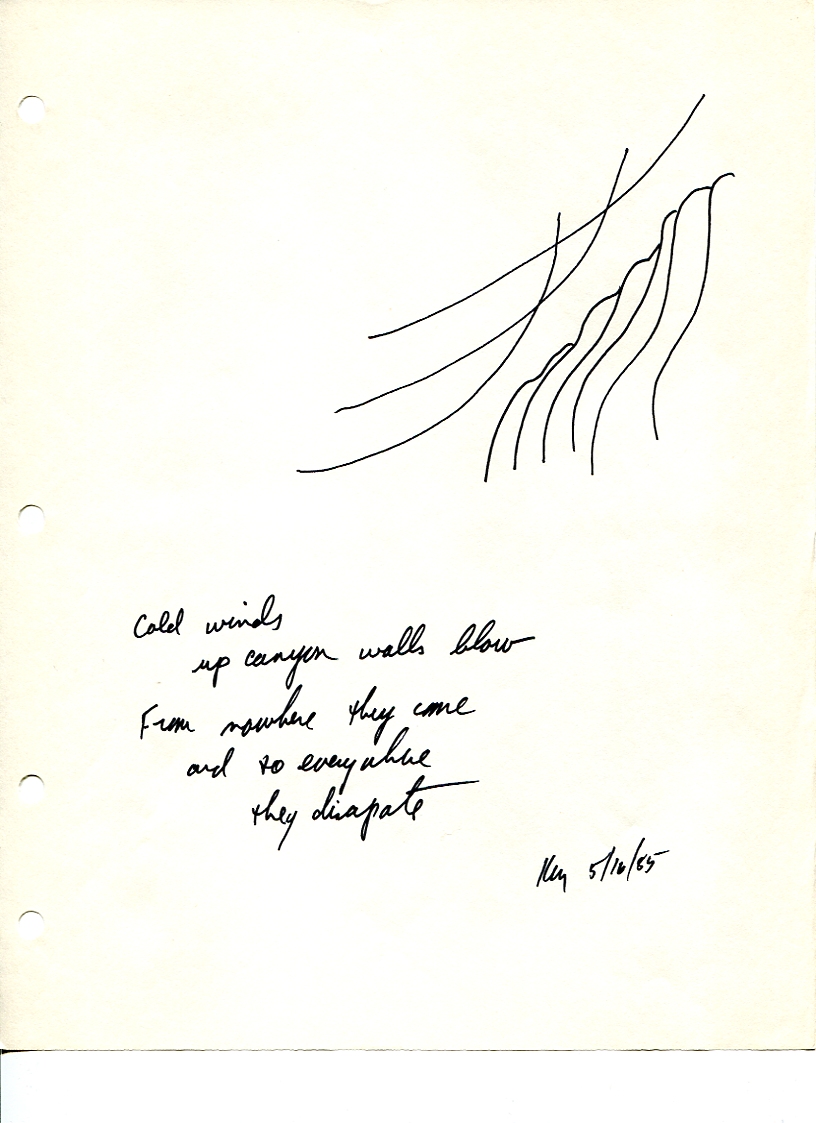 Cold winds
up canyon walls blow
From nowhere they come
and to everywhere
they disapate
5/16/85